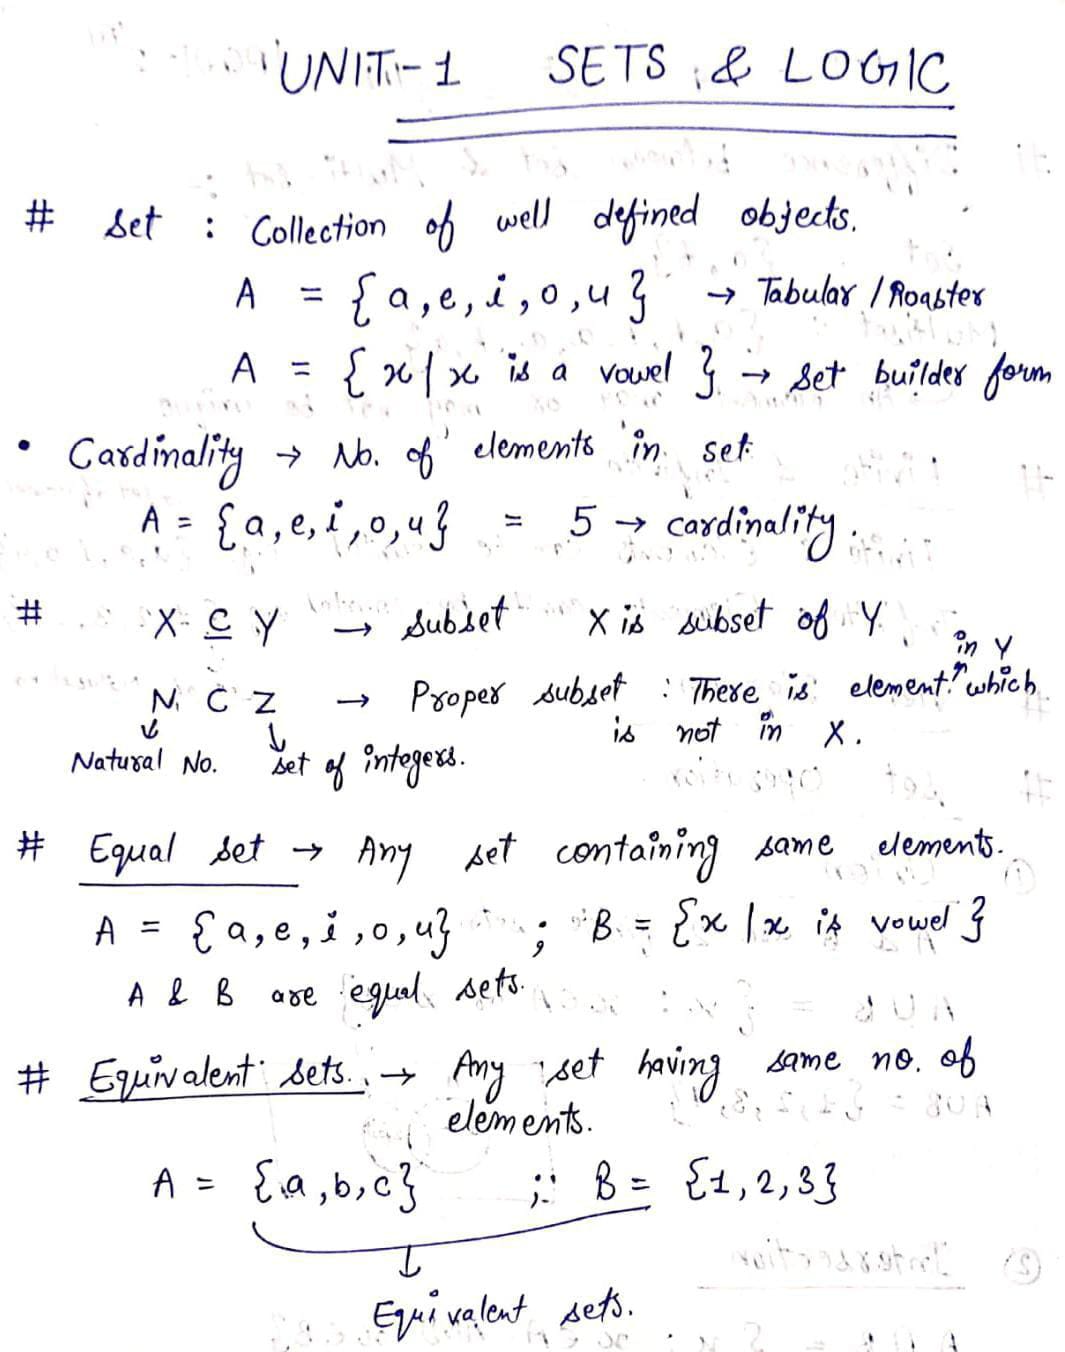 UNIT-1 SETS & LOGIC
# Set : Collection of well defined objects.
A = {a,e,i,o,u} → Tabular / Roaster
A = {x|x is a vowel} → Set builder form
• Cardinality → No. of elements in set
A = {a,e,i,o,u} = 5 → cardinality.
# X ⊆ Y → Subset X is subset of Y.
in Y
N ⊂ Z → Proper subset : There is element ↑ which
is not in X.
↓ ↓
Natural No. Set of integers.
# Equal set → Any set containing same elements.
A = {a,e,i,o,u} ; B = {x|x is vowel}
A & B are equal sets.
# Equivalent sets. → Any set having same no. of
elements.
A = {a,b,c} ; B = {1,2,3}
↓
Equivalent sets.